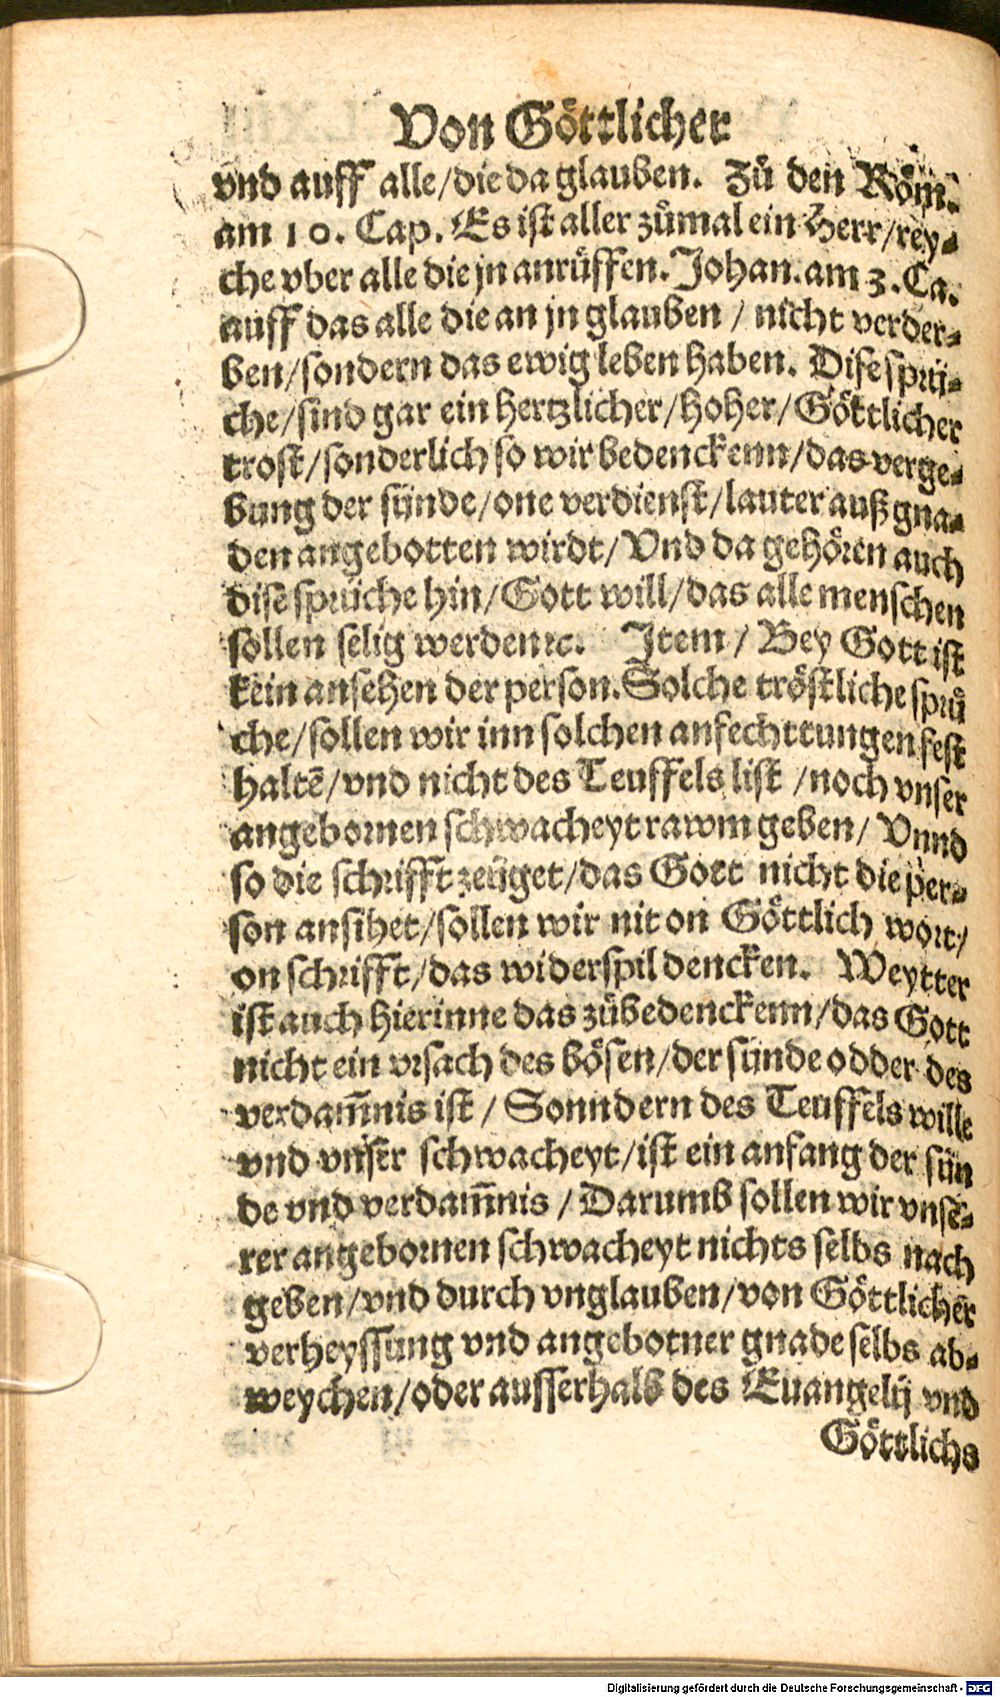 Von Göttlicher
vnd auff alle/die da glauben. Zů den Röm.
am 10. Cap. Es ist aller zůmal ein Herr/rey-
che vber alle die jn anrůffen. Johan. am 3. Ca.
auff das alle die an jn glauben / nicht verder-
ben/sondern das ewig leben haben. Dise sprü-
che/sind gar ein hertzlicher/hoher/Göttlicher
trost/sonderlich so wir bedenckenn/das verge-
bung der sünde/one verdienst/lauter auß gna-
den angebotten wirdt/Vnd da gehören auch
dise sprüche hin/Gott will/das alle menschen
sollen selig werden ꝛc. Item / Bey Gott ist
kein ansehen der person. Solche tröstliche sprü
che/sollen wir inn solchen anfechttungen fest
haltē/vnd nicht des Teuffels list /noch vnser
angebornen schwacheyt rawm geben/ Vnnd
so die schrifft zeüget/das Gott nicht die per-
son ansihet/sollen wir nit on Göttlich wort/
on schrifft/das widerspil dencken. Weytter
ist auch hierinne das zůbedenckenn/das Gott
nicht ein vrsach des bösen/der sünde odder des
verdam̄nis ist / Sonndern des Teuffels wille
vnd vnser schwacheyt/ist ein anfang der sün
de vnd verdam̄nis / Darumb sollen wir vnse-
rer angebornen schwacheyt nichts selbs nach
geben/vnd durch vnglauben/von Göttlicher
verheyssung vnd angebotner gnade selbs ab-
weychen/oder ausserhalb des Euangelij vnd
Göttlichs
Digitalisierung gefördert durch die Deutsche Forschungsgemeinschaft - DFG